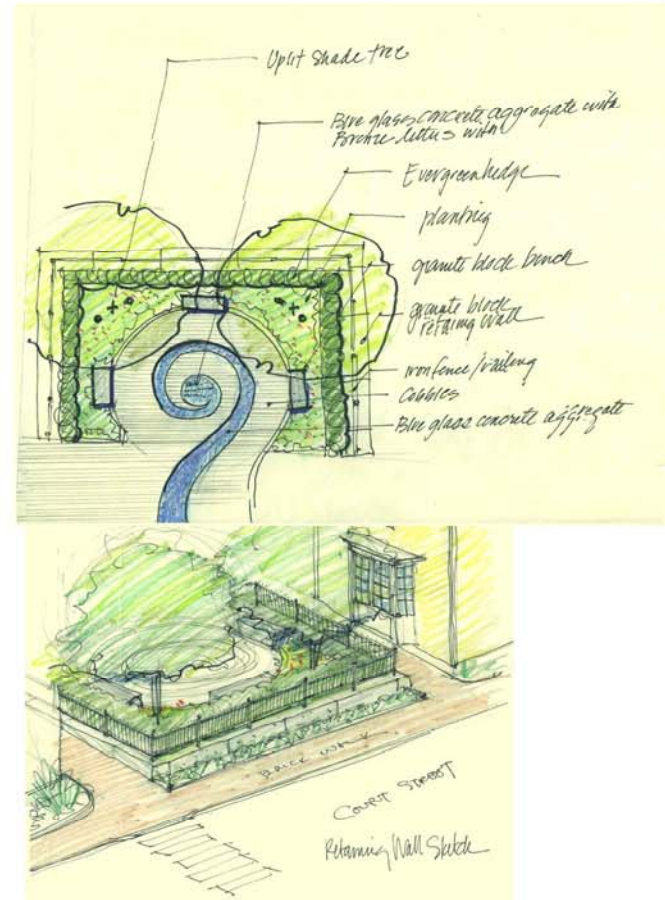 Uplit Shade tree
Blue glass concrete aggregate with
Bronze letters with
Evergreen hedge
planting
granite block bench
granite block
retaing wall
iron fence/railing
Cobbles
Blue glass concrete aggregate
BRICK WALK
COURT STREET
Retaining Wall Sketch